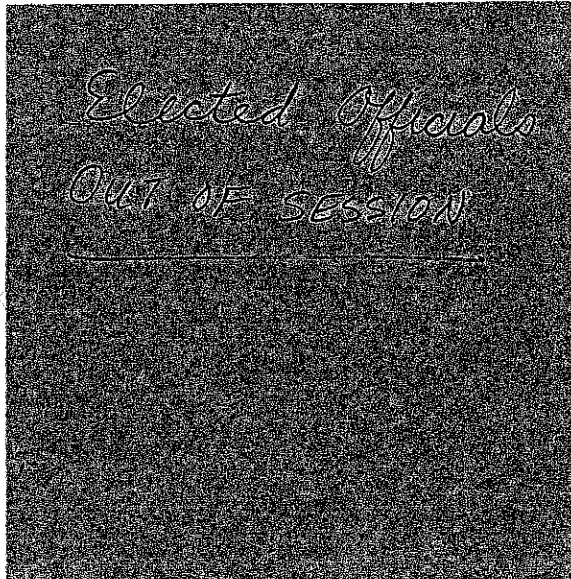 Elected Officials
OUT OF SESSION